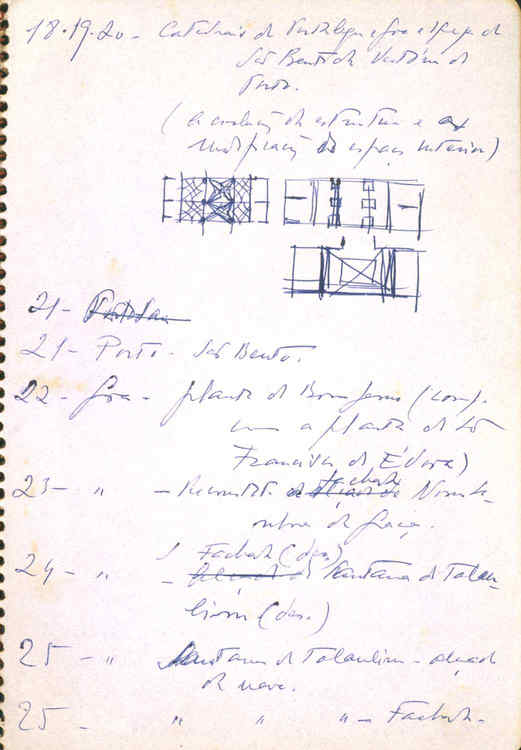 18.19.20 - Catedrais de Portalegre, Goa e Igreja de
São Bento da Vitória do
Porto.
(a evolução da estrutura e
modificação do espaço interior)
21 -
21 - Porto - São Bento.
22 - Goa - planta do Bom Jesus (comp.
com a planta de São
Francisco de Évora)
23 - " - Reconstit. fachada Nossa Se-
nhora da Graça.
24 - " - Fachada (des.)
de Santana de Talau-
lim (des.)
25 - " Santana de Talaulim - alçado
da nave.
25 - " " " - Fachada.